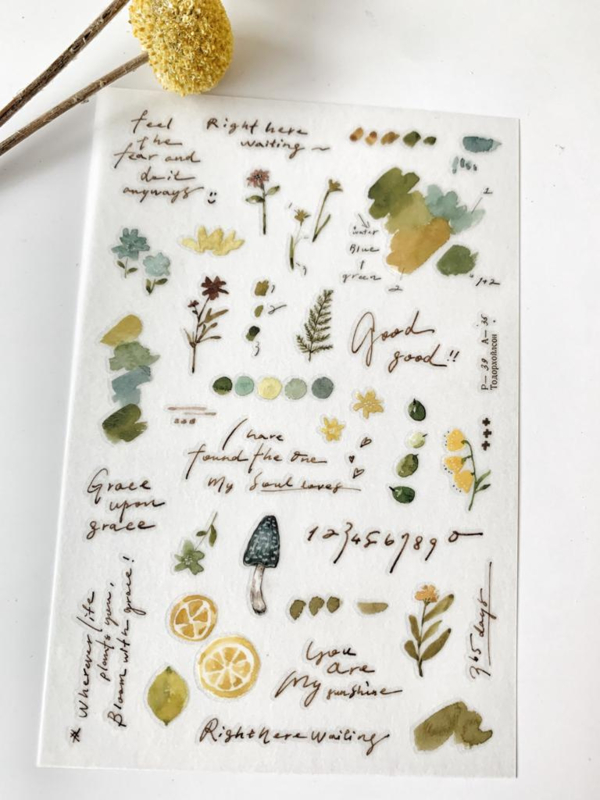 feel
the
fear and
do it
anyways
Right here
waiting
1
water
Blue
green
2
1+2
1
2
3
Good
good!!
P— 39 A— 35
Тодорхойлсон
I have
found the one
My Soul loves
Grace
upon
grace
1 2 3 4 5 6 7 8 9 0
* Wherever life
plants you,
Bloom with grace!
365 days
You
are
My sunshine
Right here Waiting